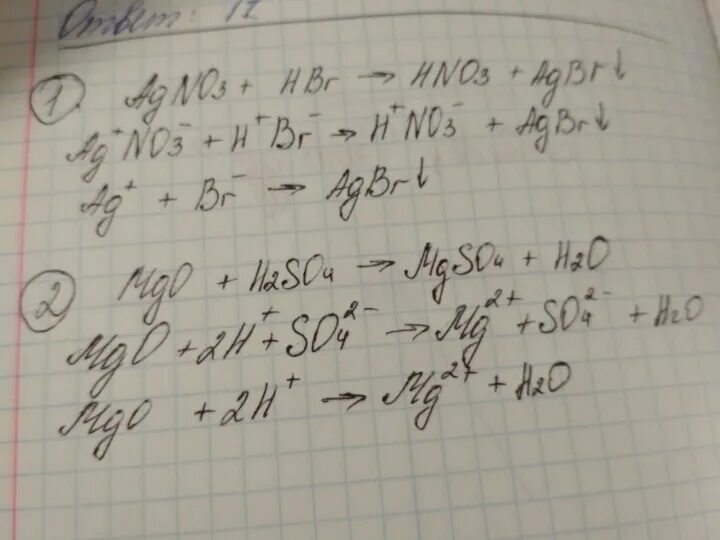 Ответ: II
① AgNO₃ + HBr → HNO₃ + AgBr↓
Ag⁺NO₃⁻ + H⁺Br⁻ → H⁺NO₃⁻ + AgBr↓
Ag⁺ + Br⁻ → AgBr↓
② MgO + H₂SO₄ → MgSO₄ + H₂O
MgO + 2H⁺ + SO₄²⁻ → Mg²⁺ + SO₄²⁻ + H₂O
MgO + 2H⁺ → Mg²⁺ + H₂O